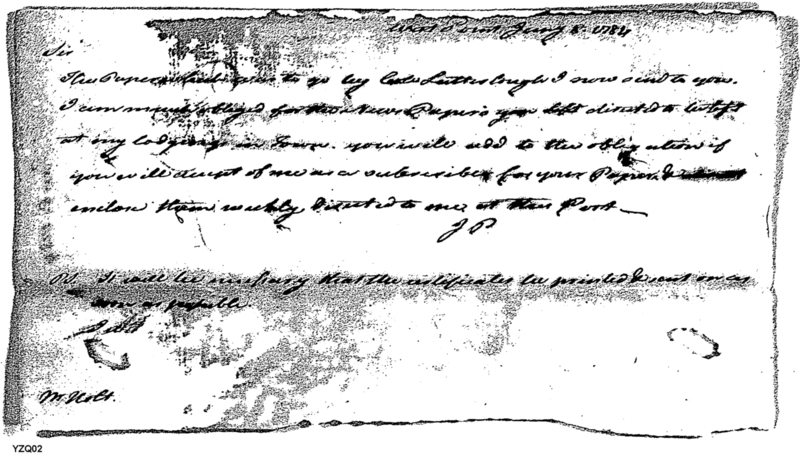 West Point Jany 8 1784
Sir
The Papers which were to go by Colo Lutterlough I now send to you.
I am much obliged for the News Papers you left directed to be left
at my lodging in Town. you will add to the obligation if
you will accept of me as a subscriber for your Paper, &
enclose them weekly directed to me at this Post —
J P
PS It will be necessary that the certificates be printed & sent on as
soon as possible
Mr Holt.
YZQ02